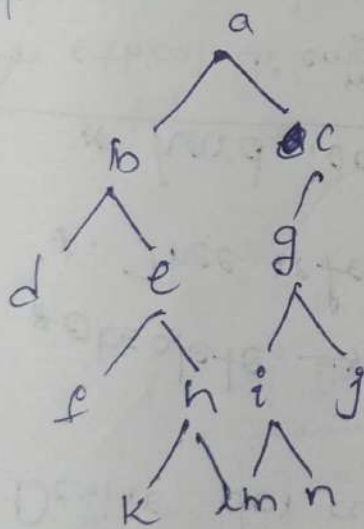 a
b c
d e g
f h i j
k l m n